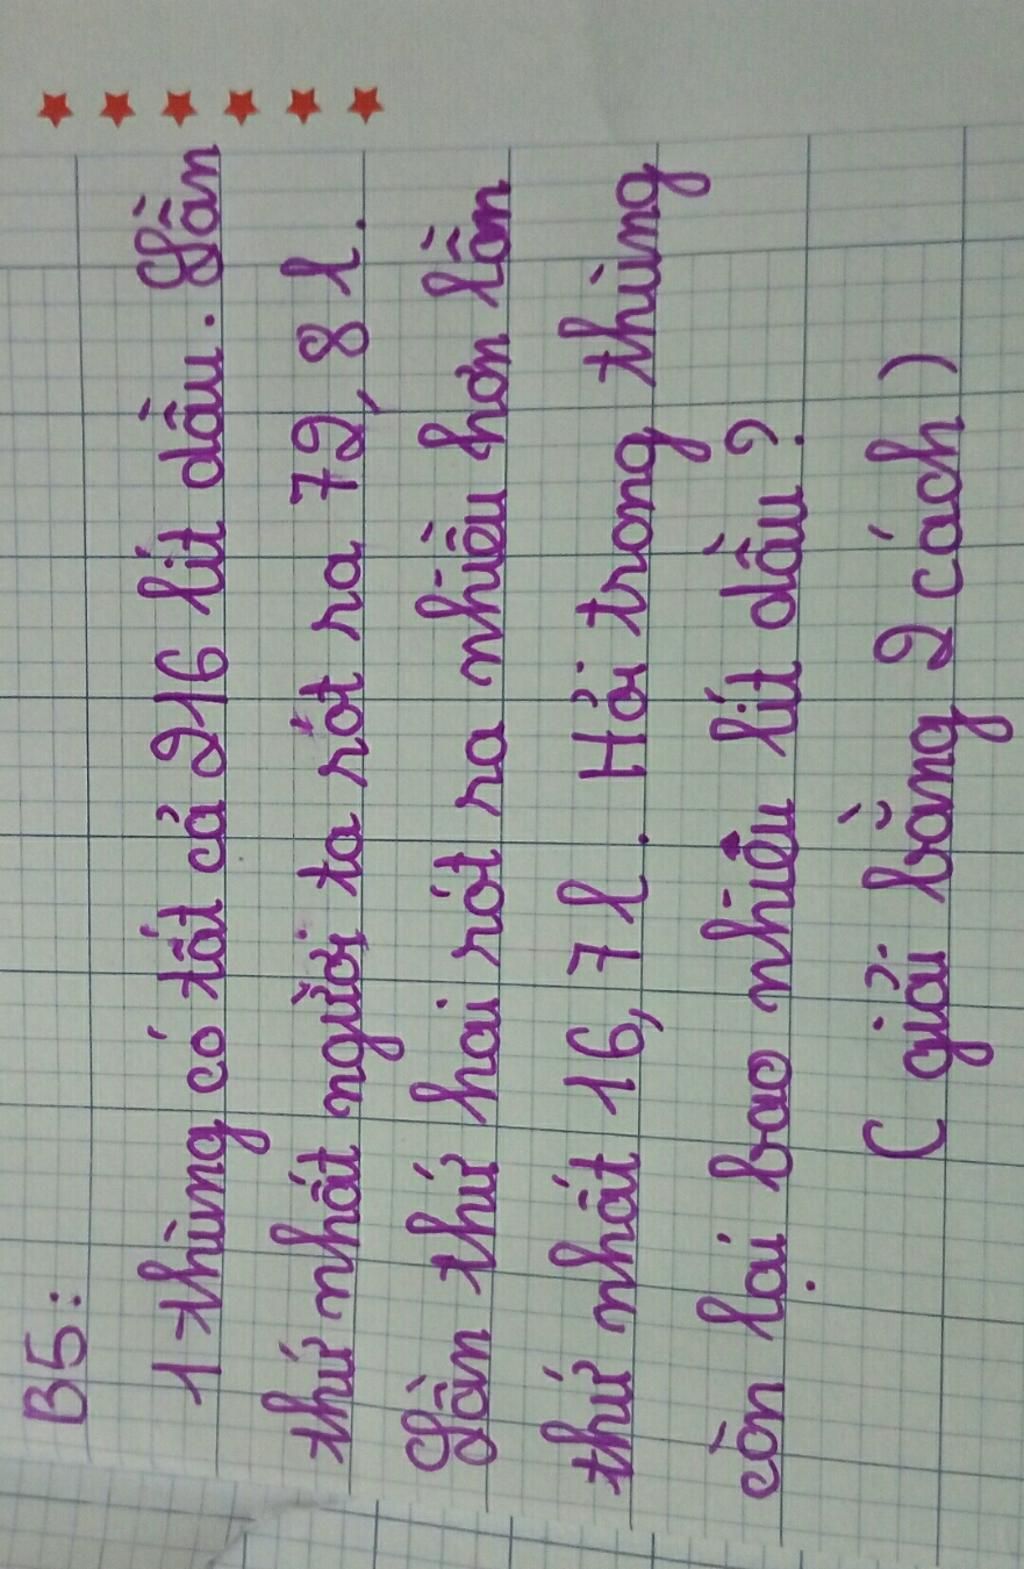 B5:
1 thùng có tất cả 216 lít dầu. Lần
thứ nhất người ta rót ra 72,8 l.
Lần thứ hai rót ra nhiều hơn lần
thứ nhất 16,7 l. Hỏi trong thùng
còn lại bao nhiêu lít dầu?
(giải bằng 2 cách)